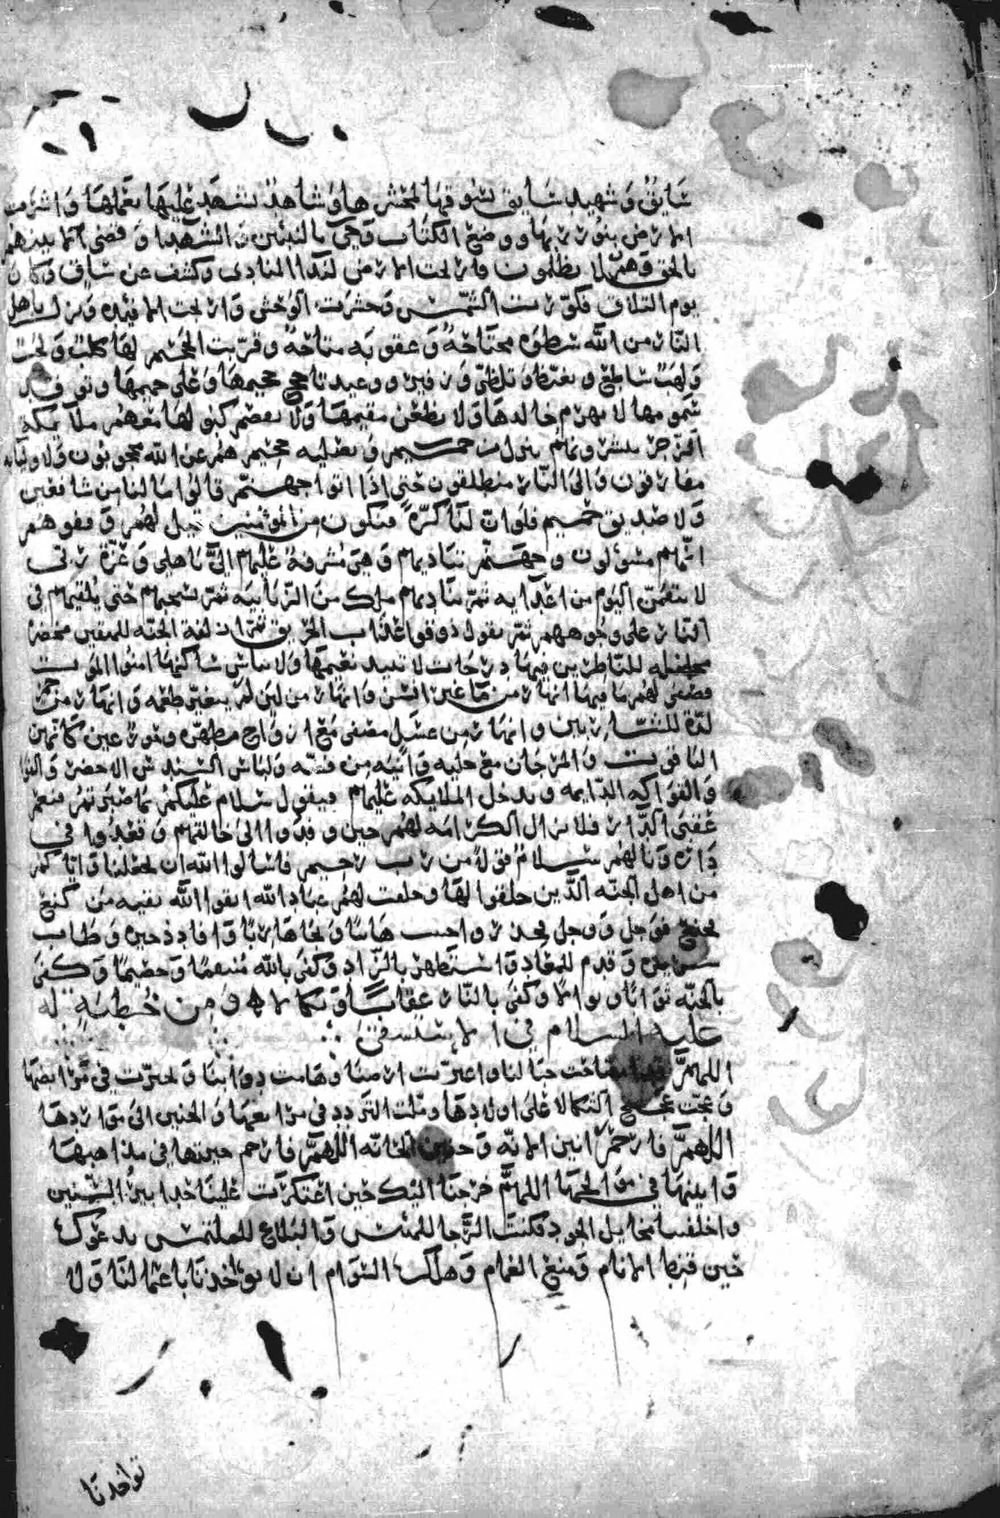 سَايق وَشهيد سَايق يسُوقهَا لمحشرهَا وَشاهدٌ يَشهَد عَليهَا بعَملهَا وَاشرقت
الارض بنُور ربهَا ووضع الكتَاب وَجئ بالنبئين وَالشهَدا وَقضى بينهم
بالحق وَهُم لا يظلمُون فارتجت الارض لنِدا المنَادى وكشف عن سَاق وَكان
يوم التلاق فكوّرت الشّمس وَحشرت الوُحُش وَارتجت الافئده وَنزل باهل
النّار من الله سَطوَه مجتَاحَة وَعقوبَه متاحَةٌ وقرّبت الجَحيم لهَا كلبٌ وَلجب
وَلهبٌ سَاطع وَتغيّظ وَتلظّى وَزفير ووعيد تاجج جَحيمهَا وَغلى حميمهَا وتوقد
سَمومها لا يهرم خالدهَا وَلا يظعن مقيمهَا وَلا يفصم كبُولهَا معهُم ملايكة
الزجر يبشرونهُم بنزل من حميم وَتصليه جحيم هُم عن الله محجُوبُون وَلاوليَايه
مفارقون وَالى النّار منطلقون حَتى اذَا اتوا جهنّم قالُوا مَا لنا من شافعين
وَلا صَديق حَميم فلوان لنَا كرّة فنكون من المؤمنين قيل لهُم وَقفوهم
انّهم مسئولون وجهَنّم تنَاديهم وَهيَ مُشرفة عَليهم الىَّ باهلي وَعزّة ربّى
لا نتقمنّ اليَوم من اعدَايه ثمّ ينَاديهم ملك منَ الزّبَانيَه ثمّ يسْحبهم حَتى يُلقيهم فى
النّار على وجُوههم ثمّ يقول ذوقوا عذَاب الحَريق ثمّ ازلفة الجنّه للمتقين مخضرّة
للنّاظرين فيهَا درجَات لا يبيد نعيمهَا وَلا يباس سَاكنهَا امنُوا الموت
فصفى لهُم مَا فيهَا انهَار من مَاء غير اسن وَانهَار من لبن لم يتغيّر طعمه وَانهَار من خمر
لذة للشّاربين وانهَار من عسَل مصَفى مَع ازوَاج مطهّره وَحور عين كانهن
اليَاقوت وَالمرجَان مع حليه وَانيه من فضّه وَلبَاس السّندس الاخضر
وَالفوَاكه الدّايمه وتدخل الملايكه عَليهم فيقول سَلام عَليكم بمَا صَبرتم فنعم
عقبى الدَّار فلا تزال الكرَامَه لهُم حين وفدُوا الى خَالقهم وَقعدُوا فى
دَاره وَنَا لهُم سَلامٌ قولاً من ربٍ رحيم فاسَالوا الله ان يجعلنا وَايّاكم
من اهل الجنّه الّذين خلقوا لهَا وخلقت لهُم عبَاد الله اتقوا الله تقيه من كنع
فخنع وَوَجل وَحذر وَاحتث هَاربًا وَافاد ذخيره وَطاب
سَريره وَقدم للمعَاد وَاسْتظهر بالزّاد وَكفى بالله مُنتقمًا وَخصيمًا وَكفى
بالجنّه ثوَابًا ونوالا وَكفى بالنّار عقَابًا وَنكالا وَمن خُطبَةٍ لهُ
عَليه السَلام فى الاستسقى
اللهمَّ جبَالنا واغبرّت ارضنَا وَهَامت دوَابنَا وَتحيّرت في مرَابضهَا
وَعجّت عَجيج الثكالا عَلى اولادهَا وملّت التردد فى مرَاتعهَا وَالحنين الى مَوَاردهَا
اللهمَّ فارحَم انين الانّه وَحنين الحَانّه اللهمَّ فارحم حيرتها فى مذاهبهَا
وَانينهَا في موَالجهَا اللهمَّ خرجنَا اليْك حَين اعْتكرَت عَلينَا حدابيرُ السّنين
واخلفتنا مخايل الجود فكنتَ الرّجا للمبتئس وَالبَلاغ للملتمس ندعُوك
حَين قنط الانام وَمنع الغمام وَهلك السّوَام ان لا تؤاخذنا باعمالنَا وَلا
تواخذنا